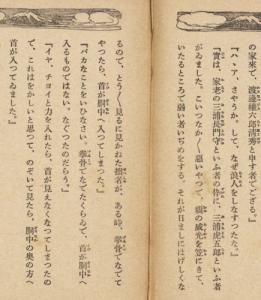 の家來で、渡邊權六郎清秀と申す者でござる。』
『ハ、ア、さやうか。して、なぜ浪人をしなすつたな。』
『實は、家老の三浦長門守といふ者の忰に、三浦虎五郎といふ者
がゐました。こいつなか〳〵惡いやつで、親の威光を笠にきて、
いたるところで弱い者いぢめをする。それが日ましにはげしくな
るので、とう〳〵見るに見かねた拙者が、ある時、拳骨でなでて
やつたら、首が胴中へ入つてしまつた。』
『バカなことをいひなさい。拳骨でなでたくらゐで、首が胴中へ
入るものではない。なぐつたのだらう。』
『イヤ、チョイと力を入れたら、首が見えなくなつてしまつたの
で、これはをかしいと思つて、のぞいて見たら、胴中の奥の方へ
首が入つてゐました。』